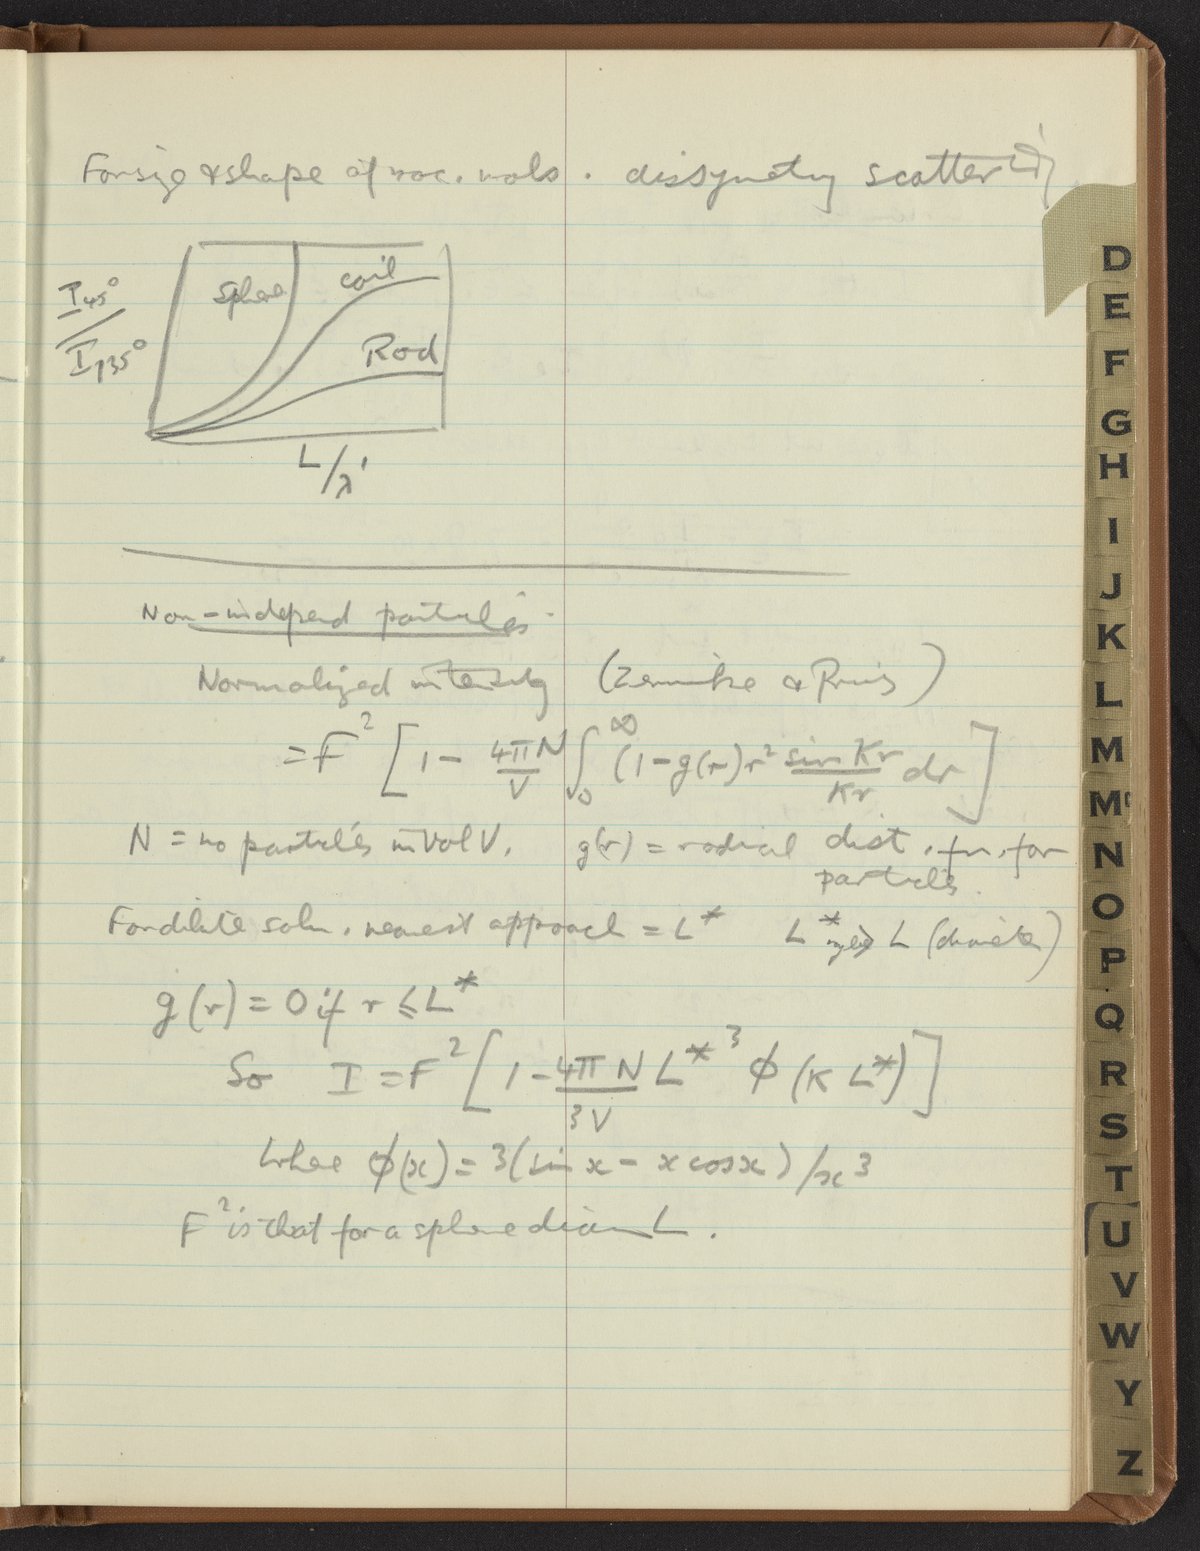 For size & shape of mac. mols. dissymetry scattering
I45°/I135°
Sphere
coil
Rod
L/λ'
Non-independ particles.
Normalized intensity (Zernike & Prins)
= F² [1 - 4πN/V ∫₀^∞ (1 - g(r)) r² sin Kr/Kr dr]
N = no particles in vol V. g(r) = radial dist. fn. for
particles.
For dilute soln. nearest approach = L* L* L (diameter)
g(r) = 0 if r ≤ L*
So I = F² [1 - 4πN/3V L*³ φ(K L*)]
Where φ(x) = 3(sin x - x cos x)/x³
F² is that for a sphere diam L.
D
E
F
G
H
I
J
K
L
M
Mc
N
O
P
Q
R
S
T
U
V
W
Y
Z